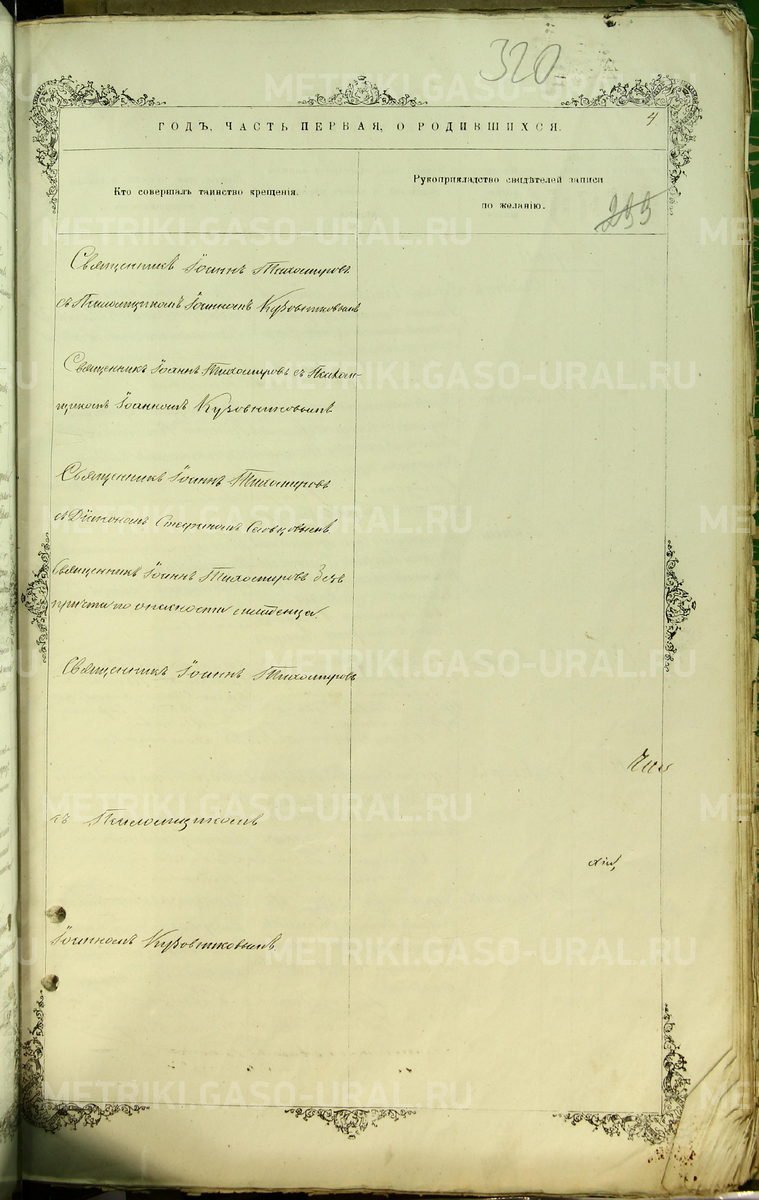 320
4
ГОДЪ, ЧАСТЬ ПЕРВАЯ, О РОДИВШИХСЯ.
Кто совершалъ таинство крещенія.
Рукоприкладство свидѣтелей записи
по желанію.
233
Священникъ Іоаннъ Тихомировъ
съ Псаломщикомъ Іоанномъ Кузовниковымъ
Священникъ Іоаннъ Тихомировъ съ Псалом-
щикомъ Іоанномъ Кузовниковымъ
Священникъ Іоаннъ Тихомировъ
съ Діакономъ Стефаномъ Словцовымъ.
Священникъ Іоаннъ Тихомировъ безъ
причта по опасности младенца.
Священникъ Іоаннъ Тихомировъ
съ Псаломщикомъ
Іоанномъ Кузовниковымъ
METRIKI.GASO-URAL.RU